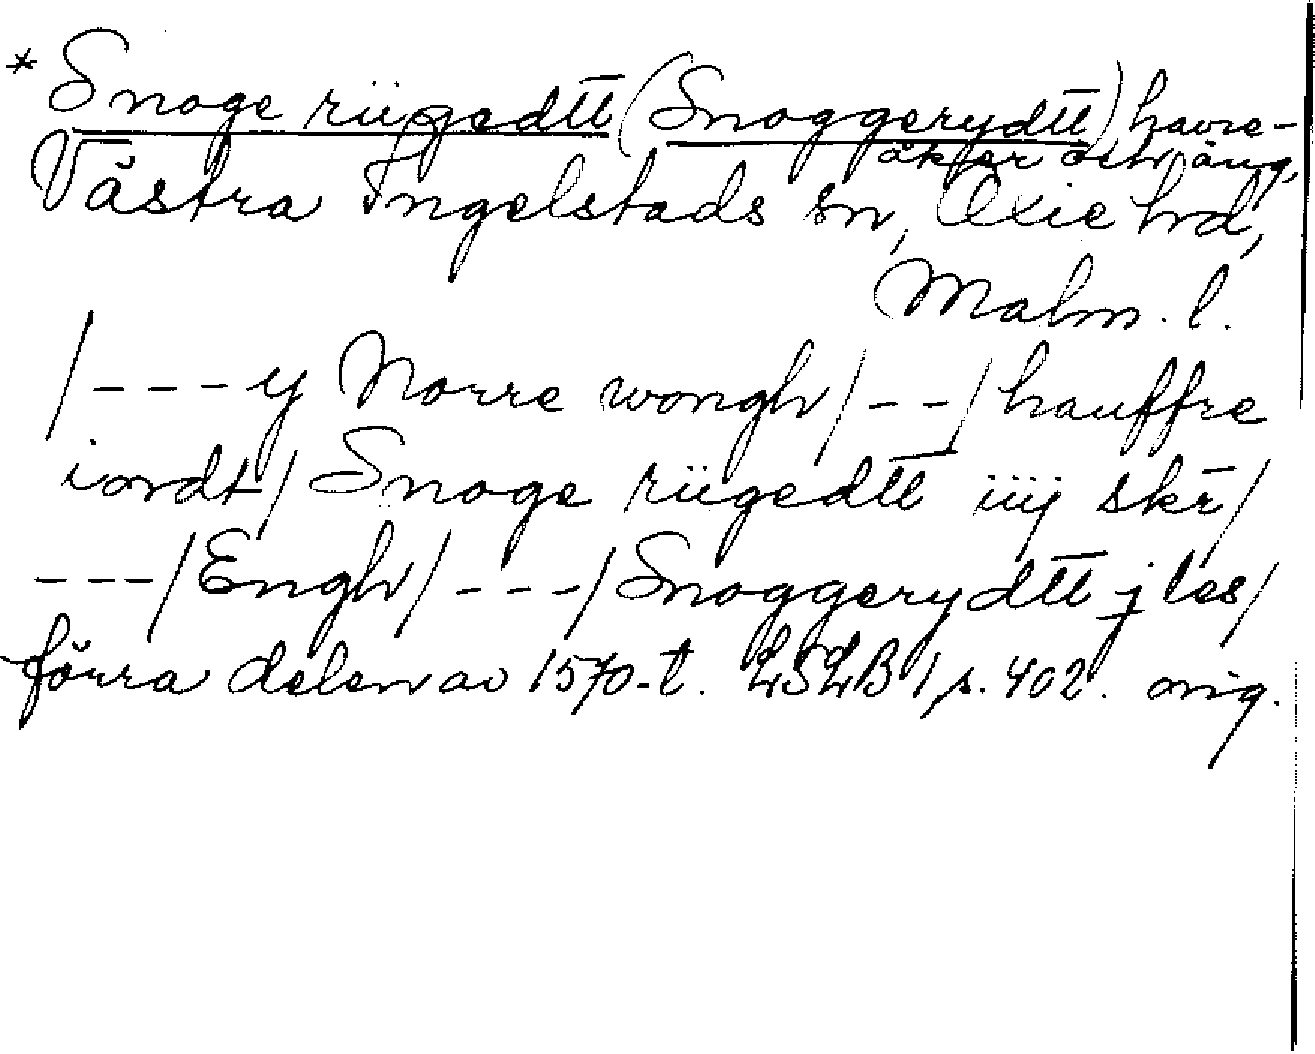 * Snoge rügedtt (Snoggerydtt) havre-
åker och äng,
Västra Ingelstads sn, Oxie hrd,
Malm. l.
/---y Norre wongh/--/hauffre
iordt/ Snoge rügedtt iiij skr/
---/Engh/---/Snoggerydtt j les/
förra delen av 1570-t. LSLB 1, s. 402. orig.